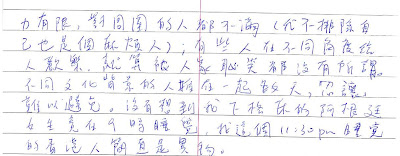 力有限，對周圍的人都不滿（我不排除自
己也是個麻煩人）；有些人在不同角度給
人歡樂，就算給人家恥笑都沒有所謂。
不同文化背景的人擠在一起的天，忍讓
難以避免。沒有想到我下格床的阿根廷
女生竟在9時睡覺，我這個11:30pm睡覺
的香港人簡直是異類。